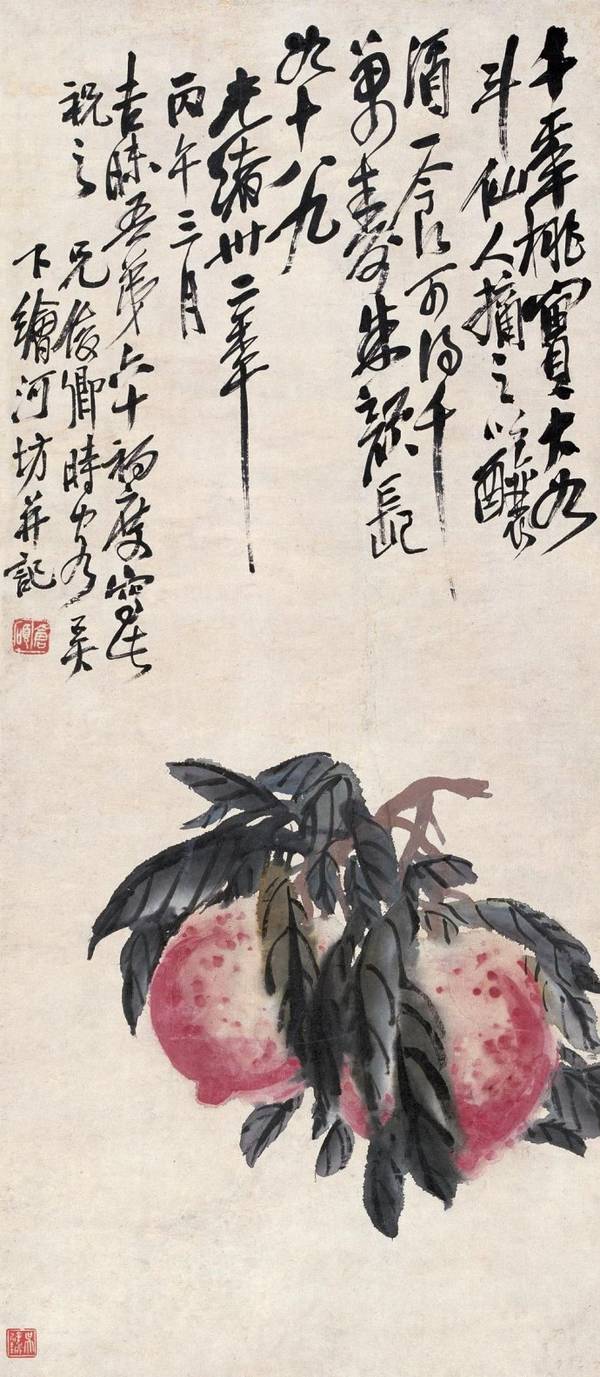 千年桃實大如
斗仙人摘之以釀
酒一食可得千
萬壽朱顏長
如十八九
光緒卅二年
丙午三月
吾弟六十初度寫此
祝之 兄俊卿時客吳
下繪河坊并記
倉碩